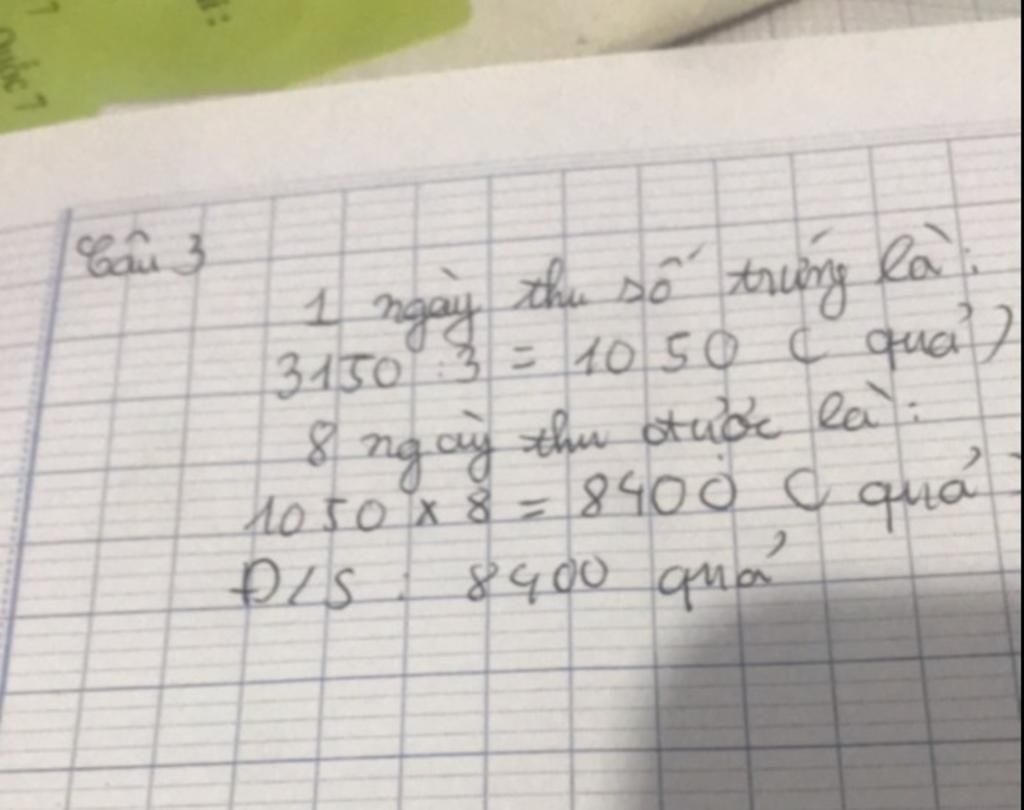 Quốc 7
Câu 3
1 ngày thu số trứng là:
3150 : 3 = 1050 ( quả )
8 ngày thu được là:
1050 x 8 = 8400 ( quả
Đ/S : 8400 quả